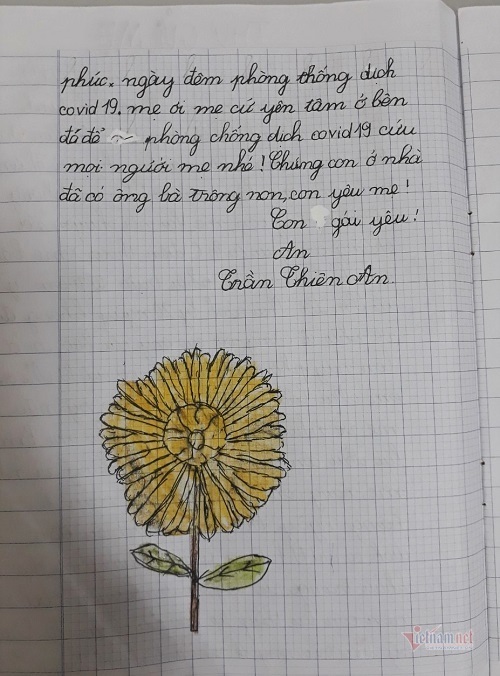 phúc. ngày đêm phòng thống dịch
covid 19. mẹ ơi mẹ cứ yên tâm ở bên
đó để phòng chống dịch covid 19 cứu
mọi người mẹ nhé! Chúng con ở nhà
đã có ông bà trông non, con yêu mẹ!
Con gái yêu!
An
Trần Thiên An.
Vietnamnet